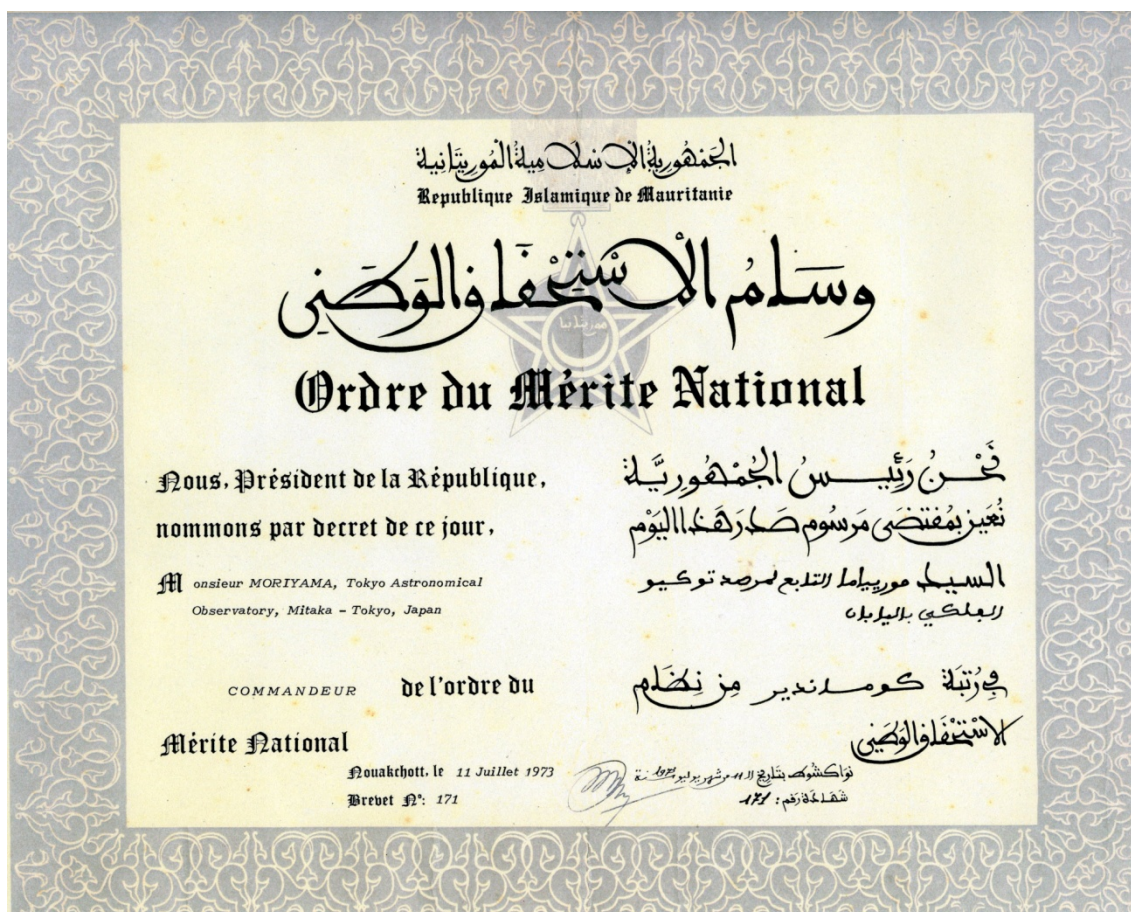 الجمهورية الإسلامية الموريتانية
Republique Islamique de Mauritanie
وسام الاستحقاق الوطني
Ordre du Mérite National
Nous, Président de la République,
nommons par decret de ce jour,
Monsieur MORIYAMA, Tokyo Astronomical
Observatory, Mitaka - Tokyo, Japan
COMMANDEUR de l'ordre du
Mérite National
Nouakchott, le 11 Juillet 1973
Brevet Nº: 171
نَحْنُ رَئِيسُ الجُمْهُورِيَّة
نُعَيِّن بمُقتَضَى مَرسُوم صَدَرَ هَذا اليَوْم
السيد مورياما التابع لمرصد توكيو
الفلكي باليابان
في رُتبَة كومانديير مِن نِظَام
الاسْتِحْقَاق الوَطَنِي
شَهَادَة رَقم: 171